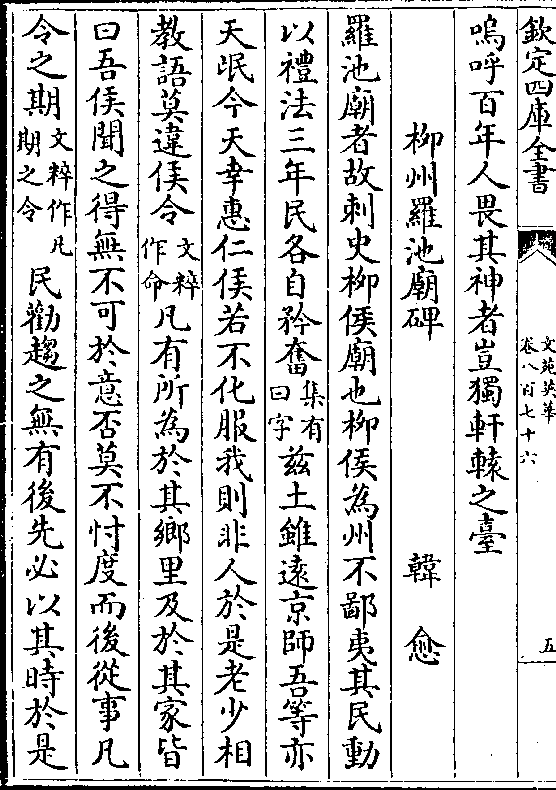 欽定四庫全書
文苑英華
卷八百七十六
五
嗚呼百年人畏其神者豈獨軒轅之臺
柳州羅池廟碑 韓愈
羅池廟者故刺史柳侯廟也柳侯為州不鄙夷其民動
以禮法三年民各自矜奮集有曰字兹土雖遠京師吾等亦
天氓今天幸惠仁侯若不化服我則非人於是老少相
教語莫違侯令文粹作命凡有所為於其鄉里及於其家皆
曰吾侯聞之得無不可於意否莫不忖度而後從事凡
令之期文粹作凡期之令民勸趨之無有後先必以其時於是